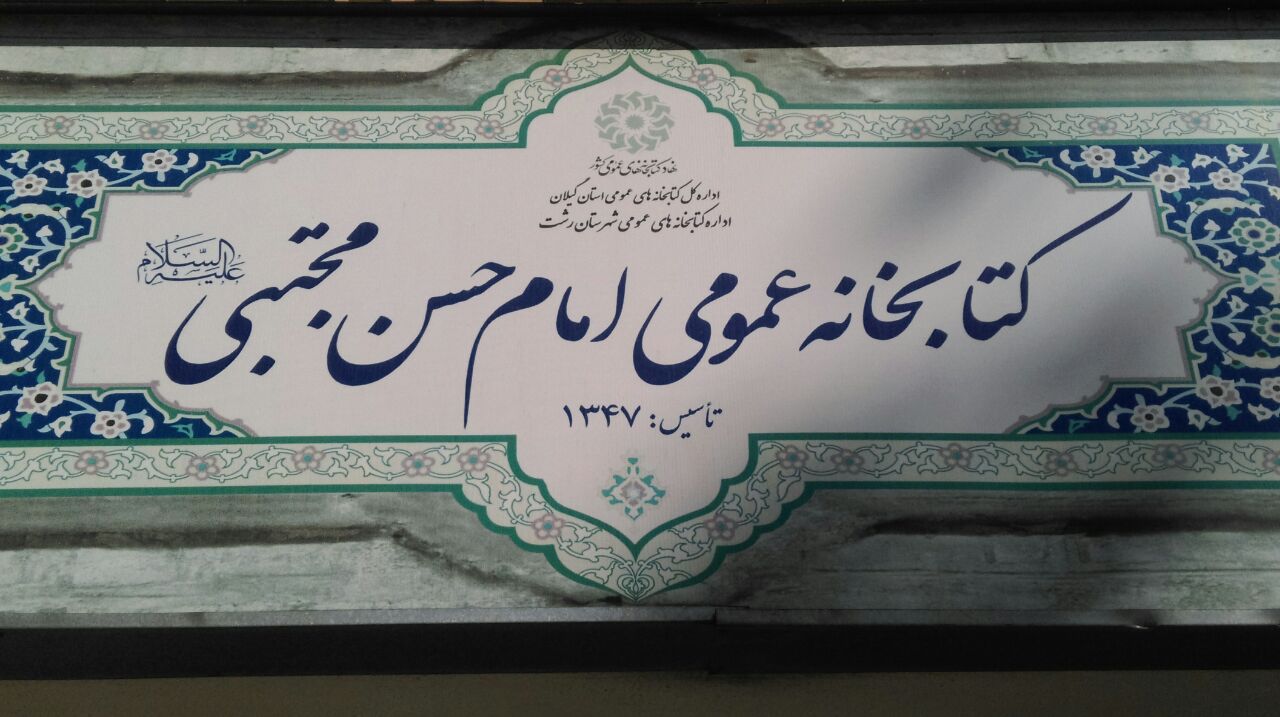 نهاد کتابخانه‌های عمومی کشور
اداره کل کتابخانه های عمومی استان گیلان
اداره کتابخانه های عمومی شهرستان رشت
کتابخانه عمومی امام حسن مجتبی علیه السلام
تأسیس: ۱۳۴۷